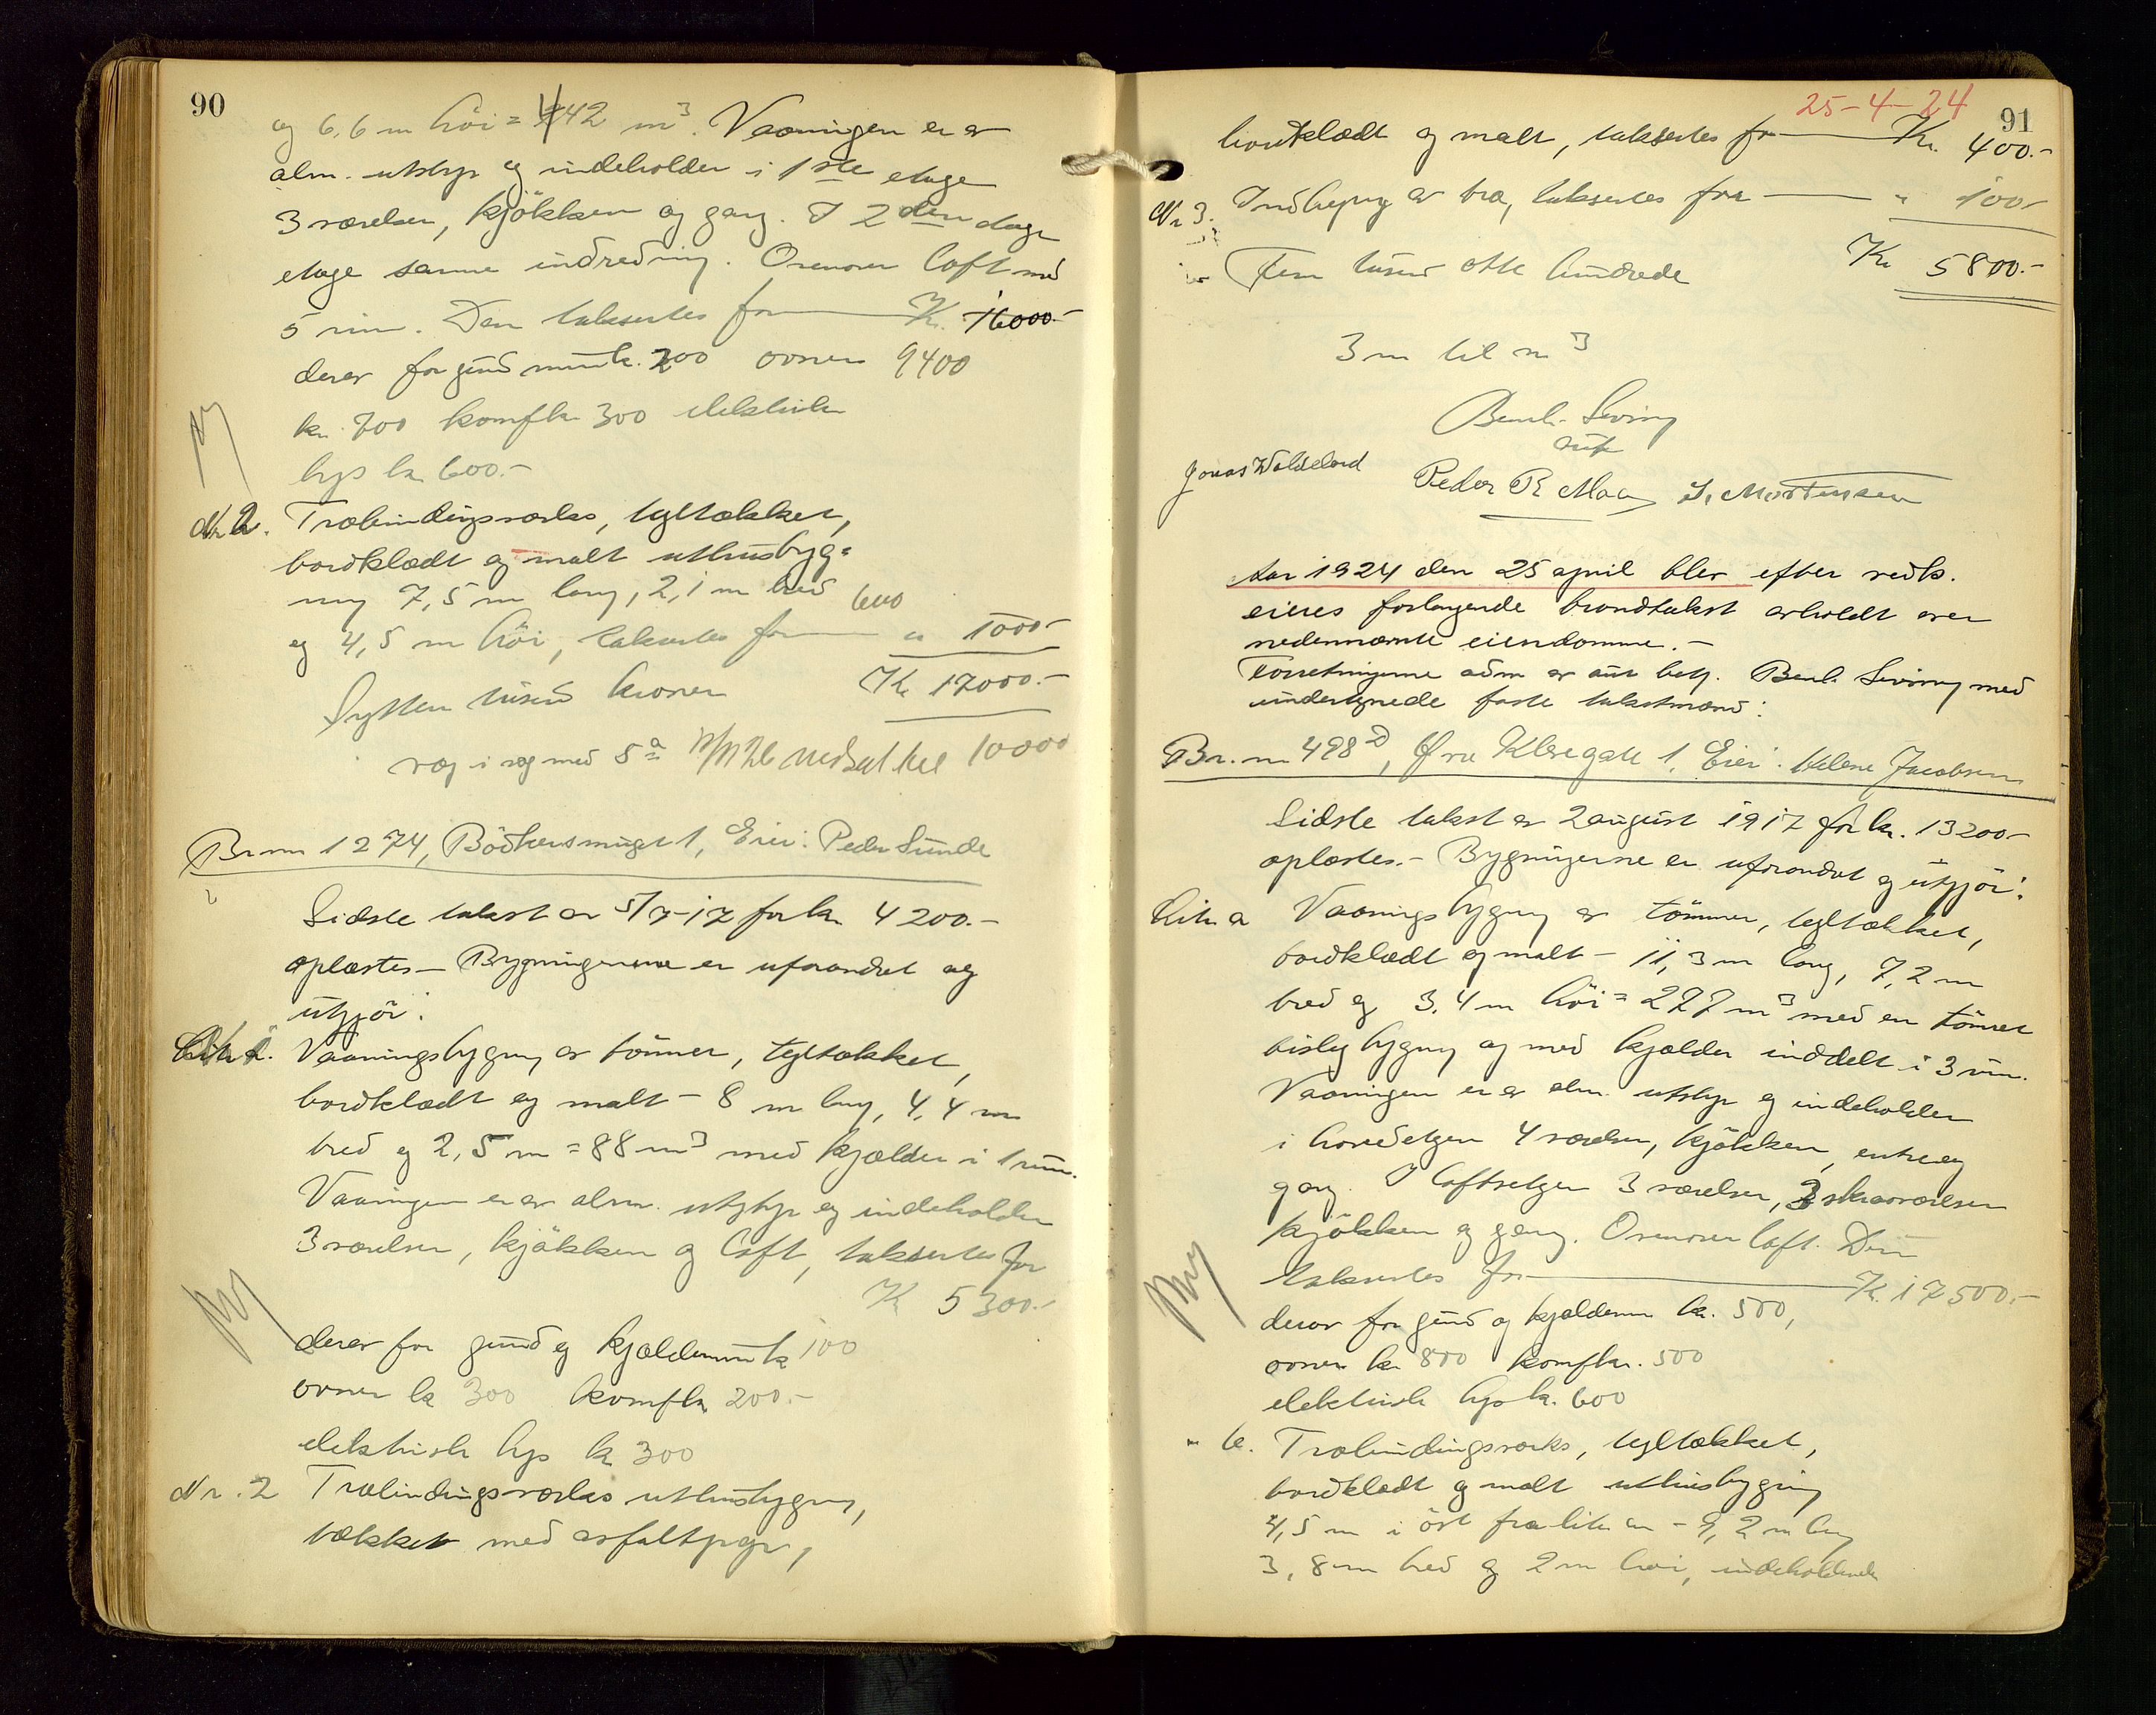 90
og 6,6 m höi = 442 m³. Vaaningen er av
alm. utstyr og indeholder i 1ste etage
3 værelser, kjökken og gang. I 2den etage
etage samme indredning. Ovenover loft med
5 rum. Den takseres for Kr. 16000.-
derav for grundmur kr. 200 ovner 9400
kr. 700 komfkr 300 elektrisk
lys kr 600.-
Nr 2. Træbindingsverks, tegltækket,
bordklædt og malt uthusbyg-
ning 7,5 m lang, 2,1 m bred 600
og 4,5 m höi, takseres for " 1000-
Sytten tusen kroner Kr 17000.-
nedsat til 10000
Br nr 1274, Bödkersmuget 1, Eier: Peder Sunde
Sidste takst av 5/7-17 for kr 4200.-
oplæstes - Bygningerne er uforandret og
utgjör:
Litr 1. Vaaningsbygning av tömmer, tegltækket,
bordklædt og malt - 8 m lang, 4,4 m
bred og 2,5 m = 88 m³ med kjælder i 1 rum.
Vaaningen er av alm. utstyr og indeholder
3 værelser, kjökken og loft, takseres for
Kr 5300.-
derav for grund og kjældermur kr 100
ovner kr 300 komfkr 200.-
elektrisk lys kr 300
Nr. 2 Træbindingsverks uthusbygning,
tækket med asfaltpap,
25-4-24
91
bordklædt og malt, takseres for Kr. 400.-
Nr 3. Indhegning av træ, takseres for " 100-
Fem tusen otte hundrede Kr 5800.-
3 m til m³
Bernh. Severing
Jonas Waldeland Peder R. Maa S. Mortensen
Aar 1924 den 25 april blev efter vedk.
eieres forlangende brandtakst avholdt over
nedennævnte eiendomme.-
Forretningerne adm av aut betj. Bernh. Severing med
undertegnede faste takstmænd:
Br. nr 498 D, Øvre Klevegate 1, Eier: Helene Jacobsen
Sidste takst av 2 august 1917 for kr. 13200-
oplæstes.- Bygningerne er uforandret og utgjör:
Litr a Vaaningsbygning av tömmer, tegltækket,
bordklædt og malt - 11,3 m lang, 7,2 m
bred og 3,4 m höi = 277 m³ med en tömret
bislagbygning og med kjælder inddelt i 3 rum.
Vaaningen er av alm. utstyr og indeholder
i hovedetagen 4 værelser, kjökken, entre og
gang. I loftsetagen 3 værelser, 3 skraaværelser
kjökken og gang. Ovenover loft. Den
takseres for Kr. 17500.-
derav for grund og kjældermur kr. 500,
ovner kr 800 komfkr. 500
elektrisk lys kr. 600
" b. Træbindingsverks, tegltækket,
bordklædt og malt uthusbygning
4,5 m i öst fra litr a - 9,2 m lang
3,8 m bred og 2 m höi, indeholdende